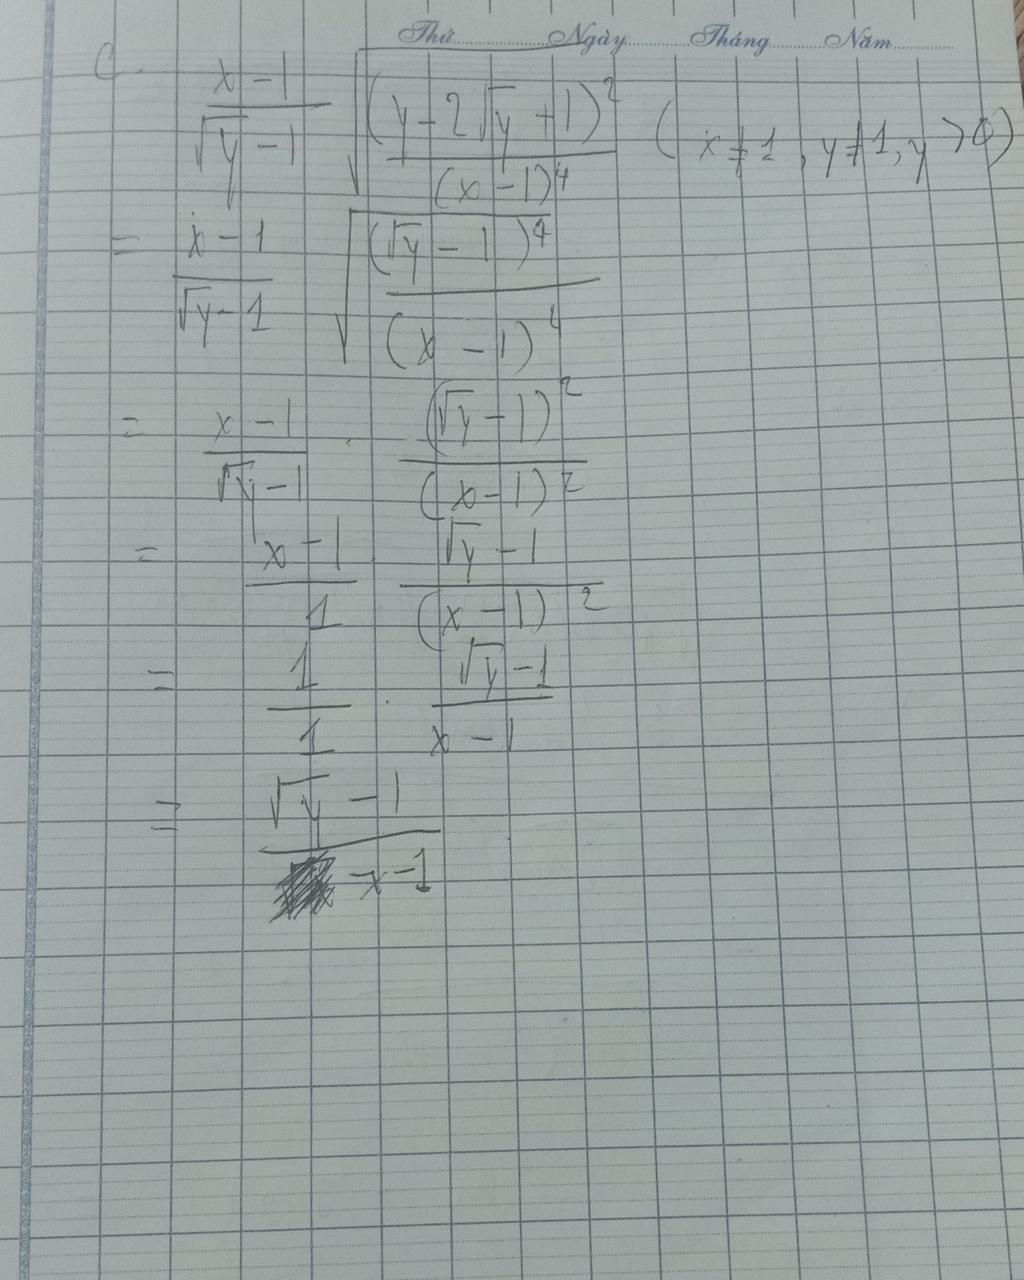 Thứ Ngày Tháng Năm
C. (x-1)/(√y-1) √((y-2√y+1)²/(x-1)⁴) (x≠1, y≠1, y>0)
= (x-1)/(√y-1) √((√y-1)⁴/(x-1)⁴)
= (x-1)/(√y-1) . (√y-1)²/(x-1)²
= (x-1)/1 . (√y-1)/(x-1)²
= 1/1 . (√y-1)/(x-1)
= (√y-1)/(x-1)